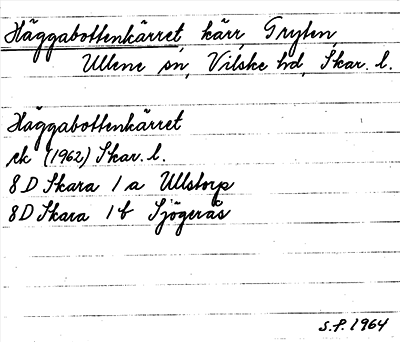 Häggabottenkärret, kärr, Gryten,
Ullene sn, Vilske hd, Skar. l.
Häggabottenkärret
ek (1962) Skar. l.
8 D Skara 1 a Ullstorp
8 D Skara 1 b Sjögerås
S.F. 1964